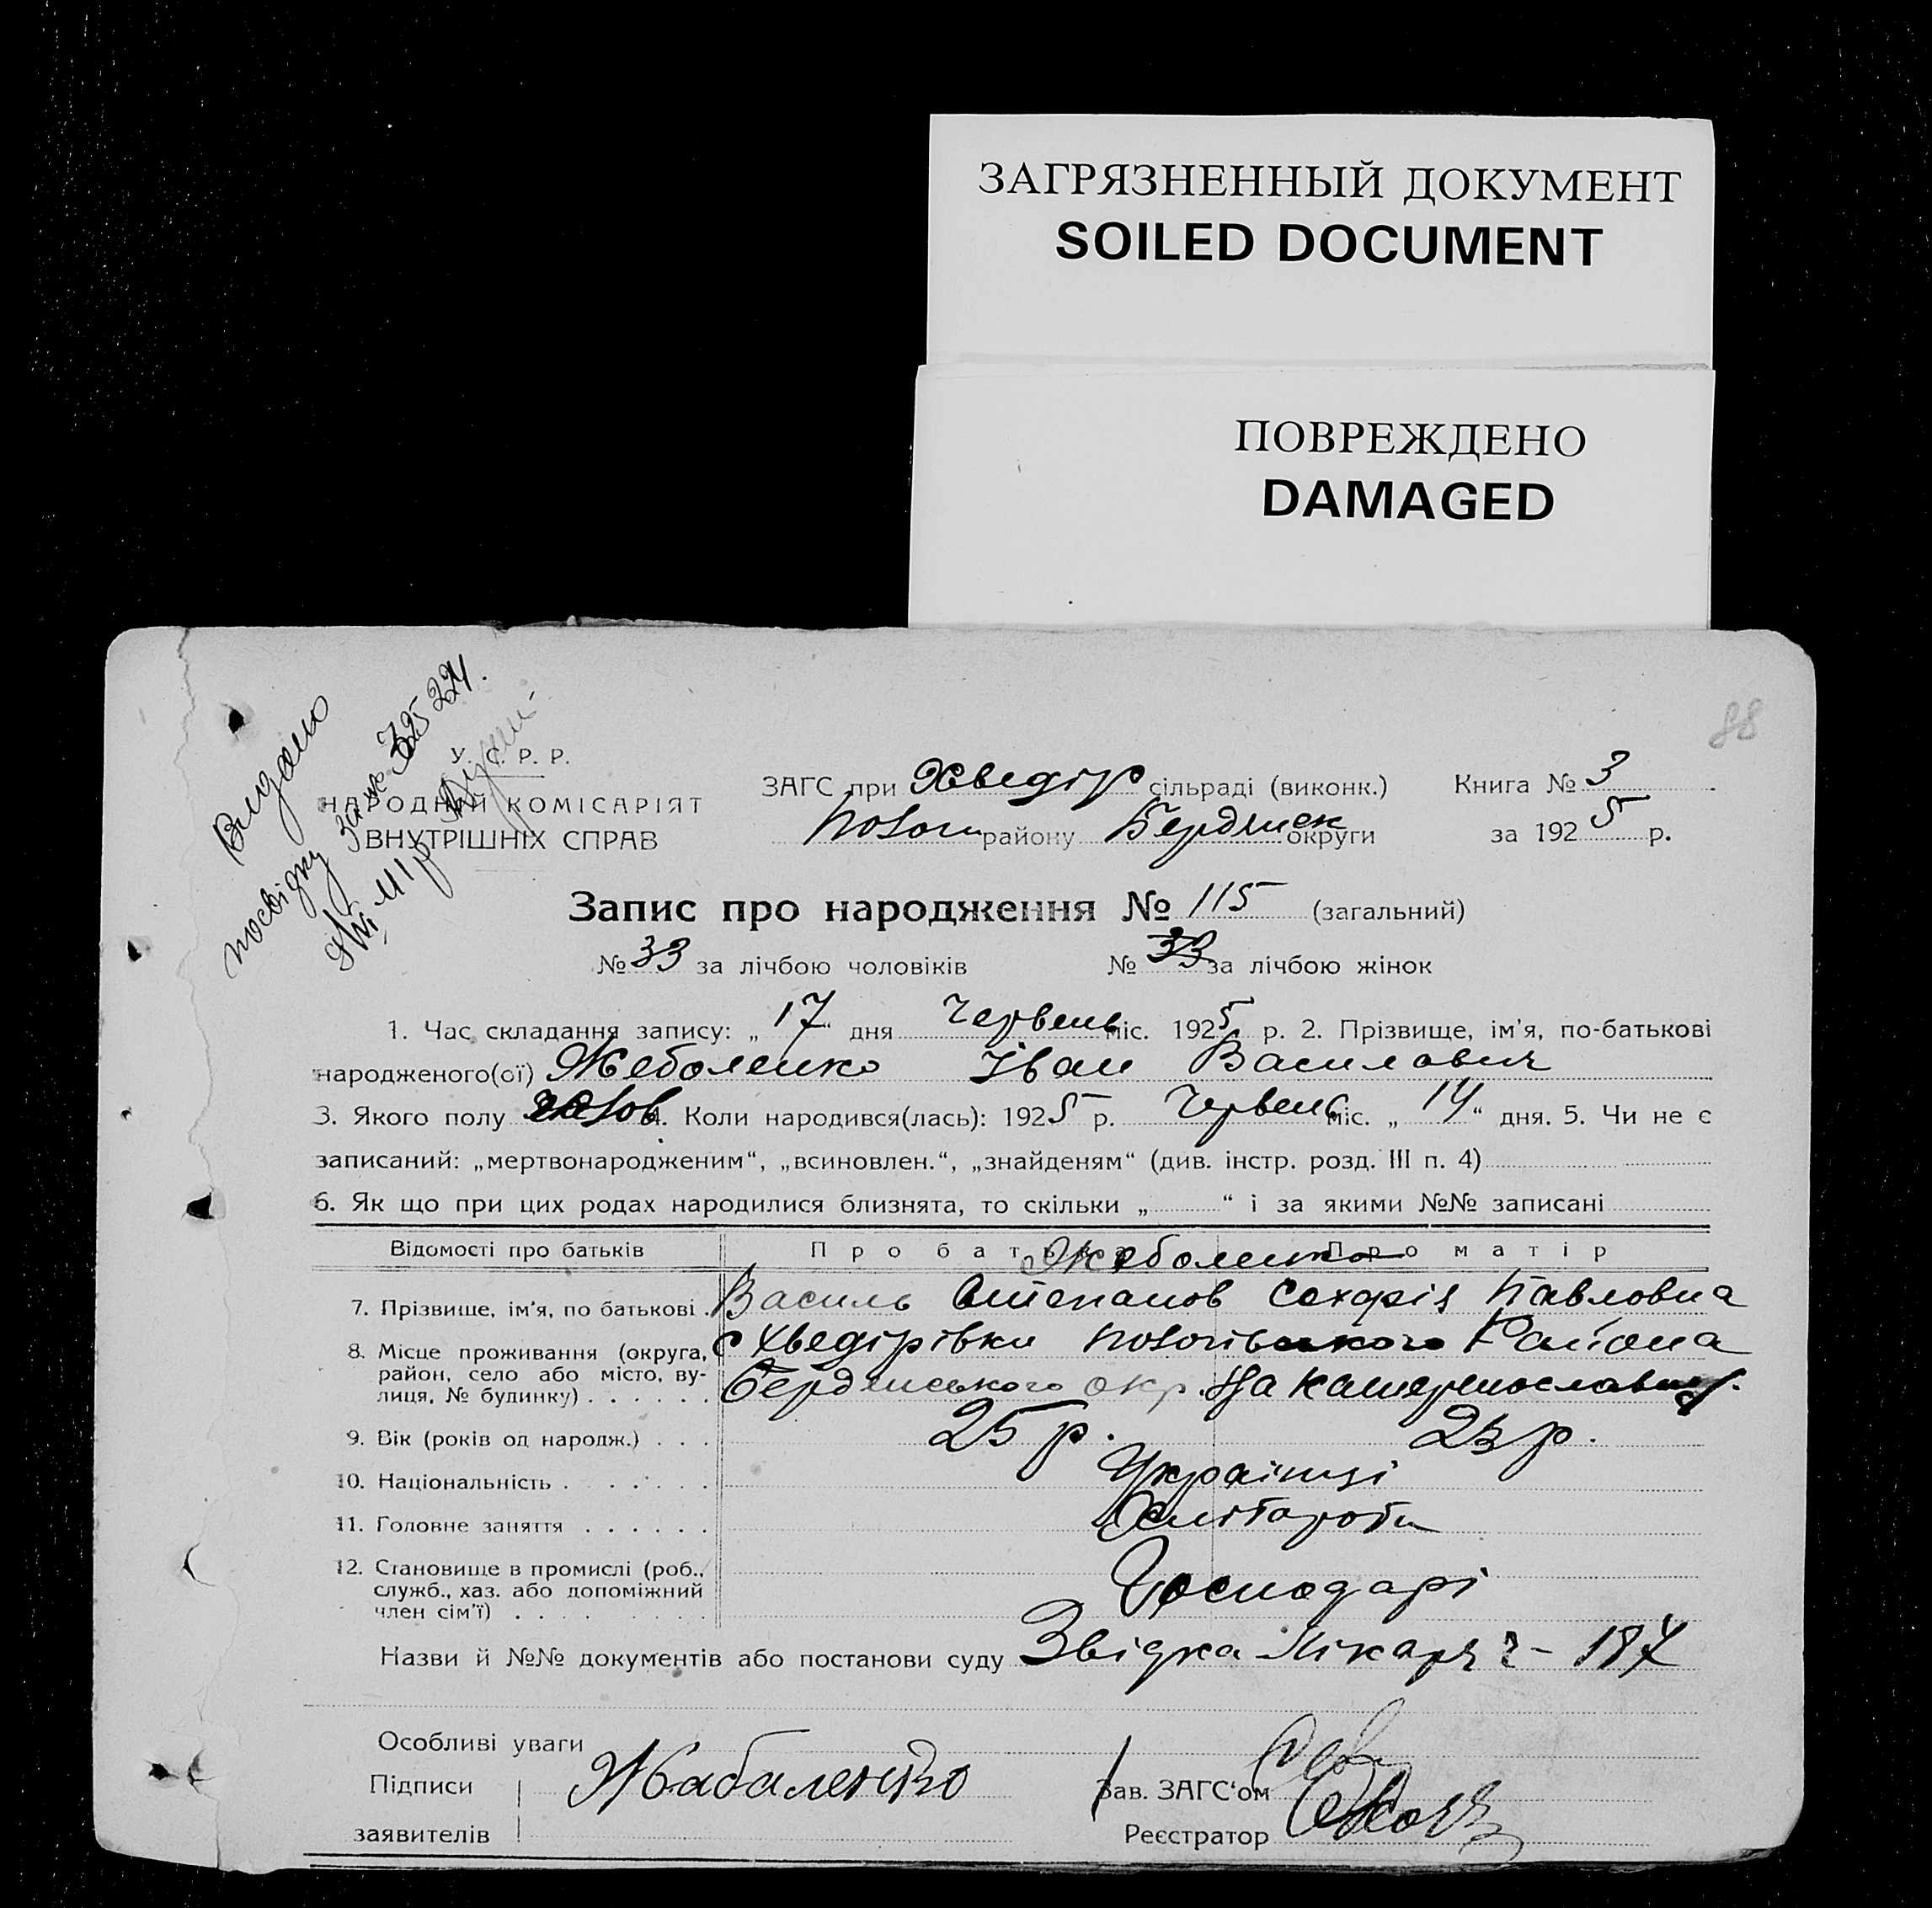 ЗАГРЯЗНЕННЫЙ ДОКУМЕНТ
SOILED DOCUMENT
ПОВРЕЖДЕНО
DAMAGED
88
Видано
посвідку за №
У. С. Р. Р.
НАРОДНІЙ КОМІСАРІЯТ
ВНУТРІШНІХ СПРАВ
ЗАГС при Хведір сільраді (виконк.) Книга № 3
району Бердянск округи за 1925 р.
Запис про народження № 115 (загальний)
№ 33 за лічбою чоловіків № 33 за лічбою жінок
1. Час складання запису: „17“ дня Червень міс. 1925 р. 2. Прізвище, ім'я, по-батькові
народженого(ої) Жеболенко Іван Василович
3. Якого полу 4. Коли народився(лась): 1925 р. Червень міс. „14“ дня. 5. Чи не є
записаний: „мертвонародженим“, „всиновлен.“, „знайденям“ (див. інстр. розд. III п. 4)
6. Як що при цих родах народилися близнята, то скільки „ “ і за якими №№ записані
Відомості про батьків Про батька Про матір
Жеболенко
7. Прізвище, ім'я, по батькові . Василь Степанов Сохфія Павловна
8. Місце проживання (округа, район, село або місто, вулиця, № будинку) . . . . . . с Хведірівки Району
Бердянського окр. на Катеринославщ.
9. Вік (років од народж.) . . . 25 р. 23 р.
10. Національність . . . . . . Українці
11. Головне заняття . . . . . . Хлібороби
12. Становище в промислі (роб., служб., хаз. або допоміжний член сім'ї) . . . . . . Господарі
Назви й №№ документів або постанови суду Звідка Лікаря ч – 187
Особливі уваги
Підписи Жабаленко Зав. ЗАГС'ом
заявителів Реєстратор